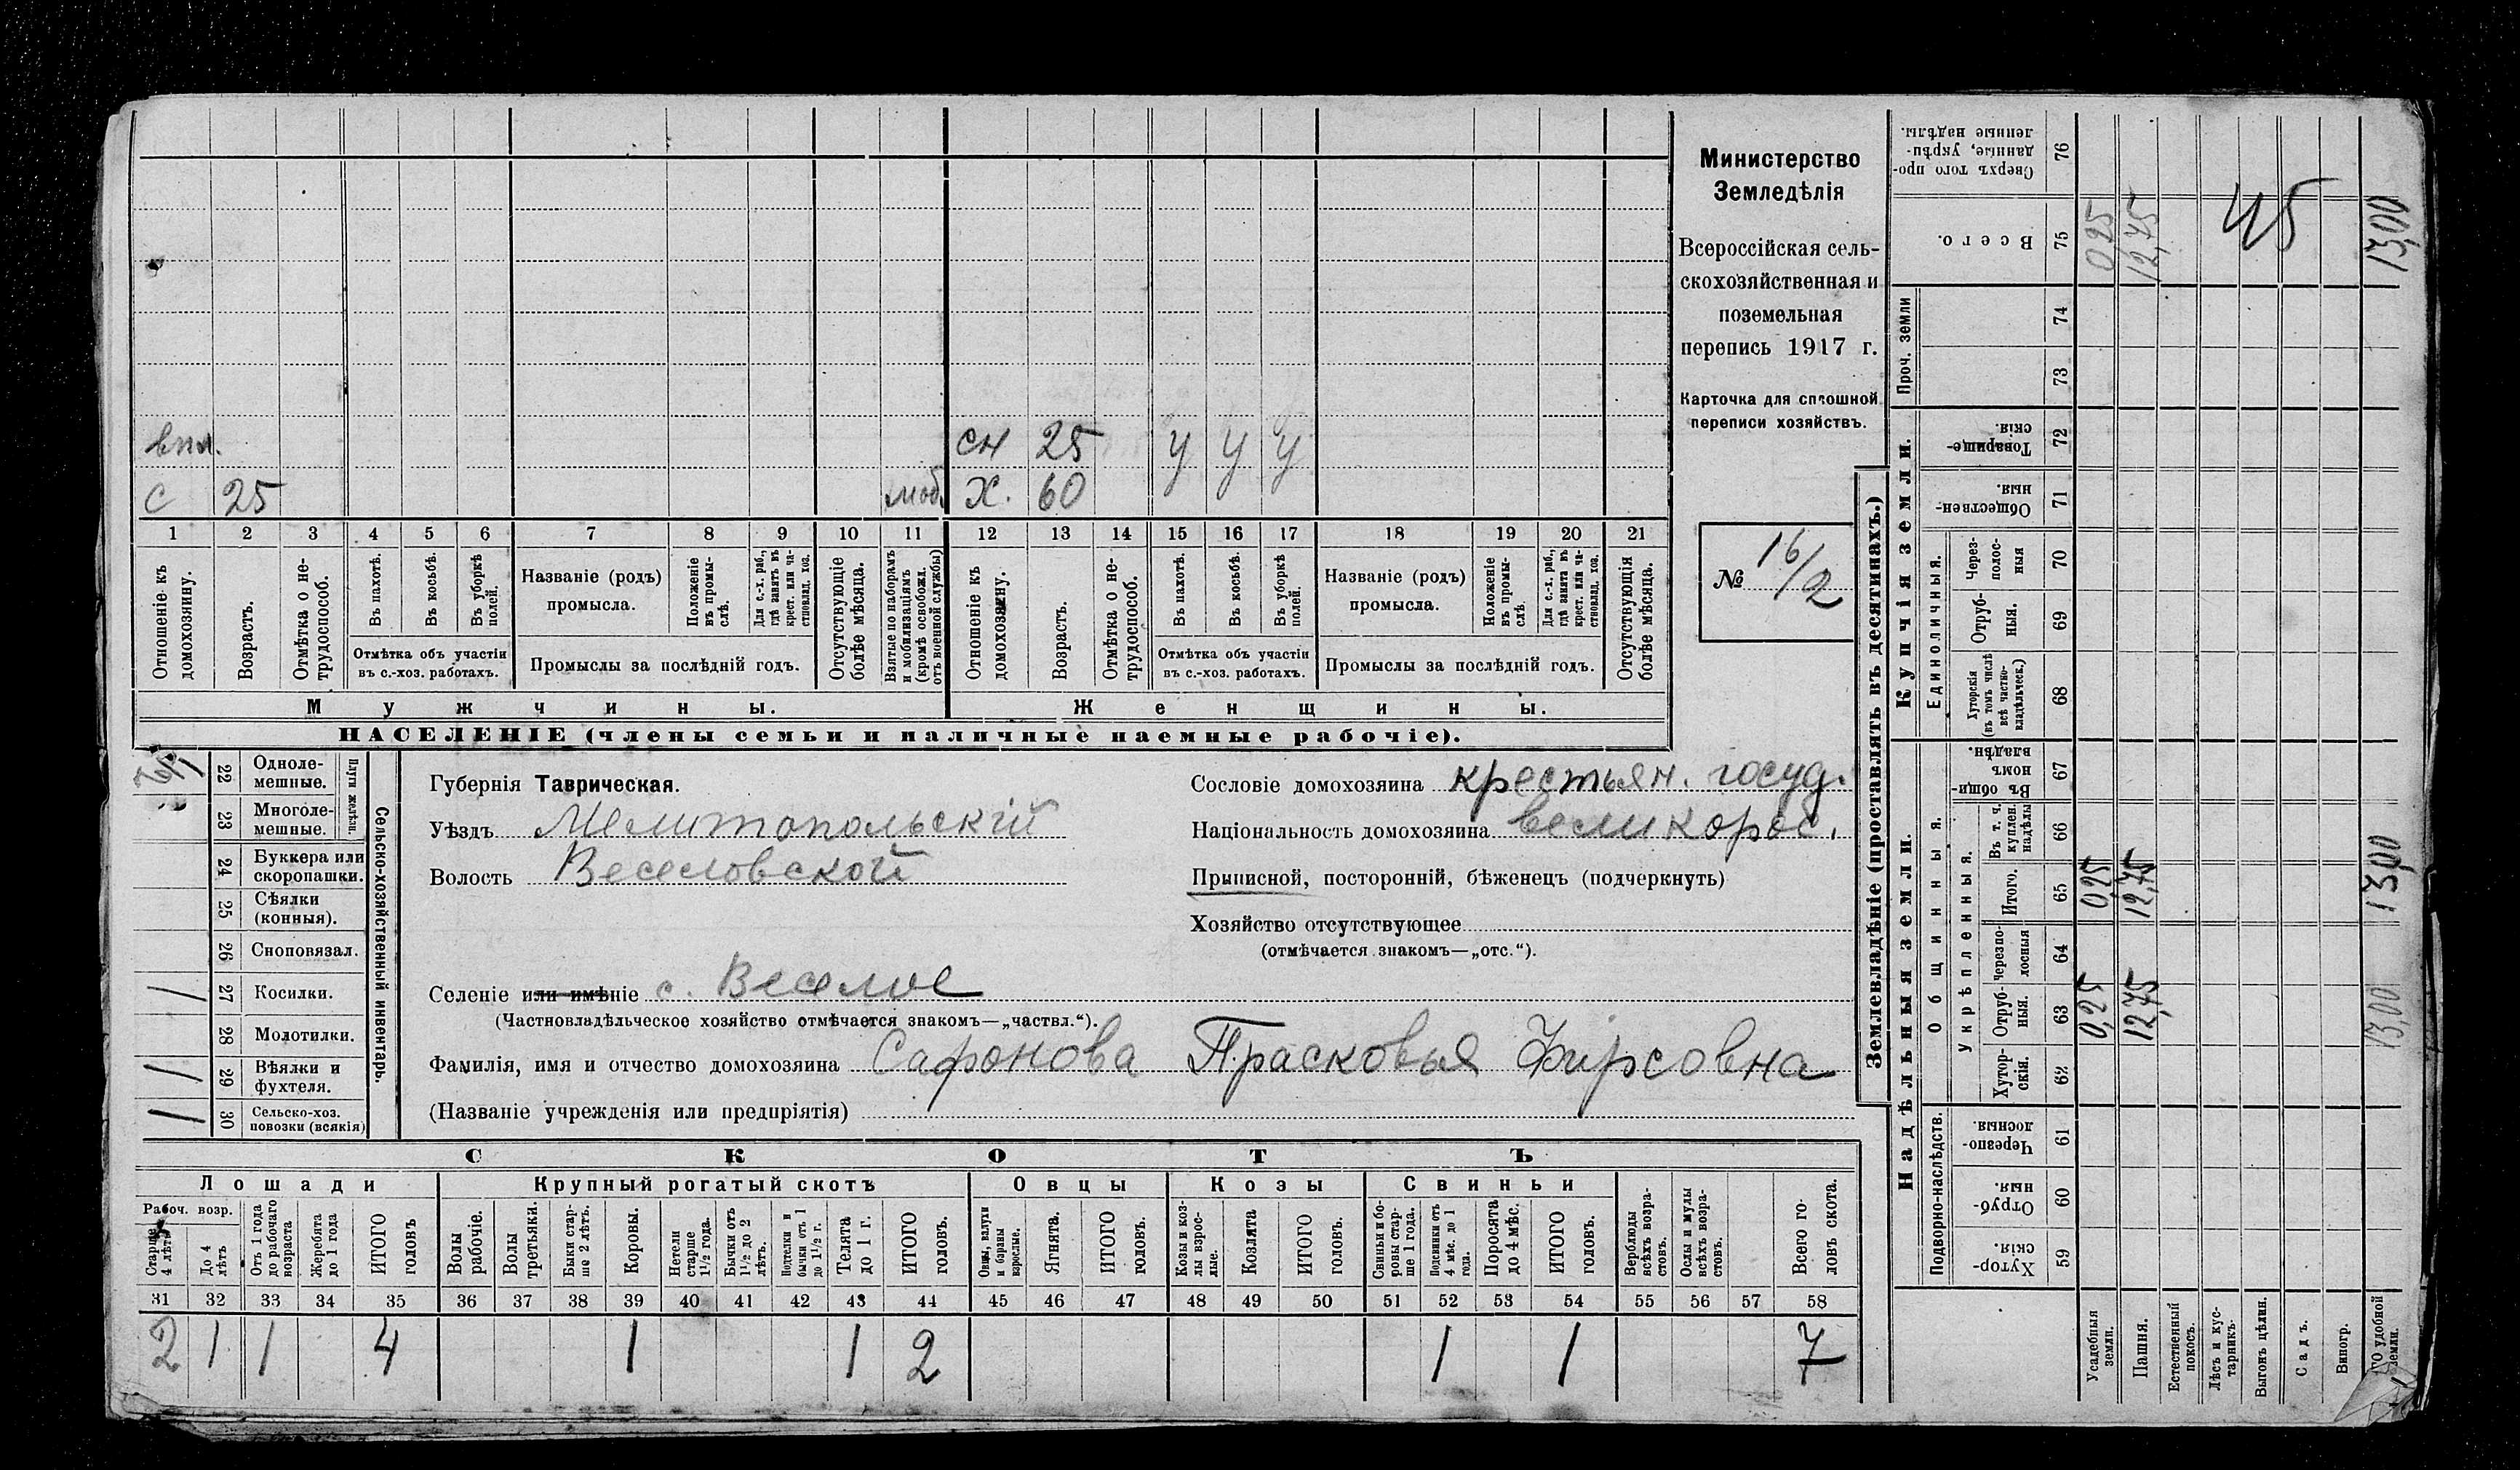 Министерство
Земледѣлія
Всероссійская сель-
скохозяйственная и
поземельная
перепись 1917 г.
Карточка для сплошной
переписи хозяйствъ.
№ 16/2
впл. сн 25 у у у
с 25 моб. Х. 60
1 2 3 4 5 6 7 8 9 10 11 12 13 14 15 16 17 18 19 20 21
Отношеніе къ домохозяину.
Возрастъ.
Отмѣтка о не-трудоспособ.
Въ пахотѣ.
Въ косьбѣ.
Въ уборкѣ полей.
Отмѣтка объ участіи
въ с.-хоз. работахъ.
Названіе (родъ)
промысла.
Положеніе въ промы-слѣ.
Для с.-х. раб., гдѣ занятъ въ крест. или ча-стновлад. хоз.
Промыслы за послѣдній годъ.
Отсутствующіе болѣе мѣсяца.
Взятые по наборамъ и мобилизаціямъ (кромѣ освобожд. отъ военной службы)
Отношеніе къ домохозяину.
Возрастъ.
Отмѣтка о не-трудоспособ.
Въ пахотѣ.
Въ косьбѣ.
Въ уборкѣ полей.
Отмѣтка объ участіи
въ с.-хоз. работахъ.
Названіе (родъ)
промысла.
Положеніе въ промы-слѣ.
Для с.-х. раб., гдѣ занята въ крест. или ча-стновлад. хоз.
Промыслы за послѣдній годъ.
Отсутствующія болѣе мѣсяца.
Мужчины. Женщины.
НАСЕЛЕНІЕ (члены семьи и наличные наемные рабочіе).
Сельско-хозяйственный инвентарь.
Плуги желѣзн.
22 Одноле-мешные.
23 Многоле-мешные.
24 Буккера или скоропашки.
25 Сѣялки (конныя).
26 Сноповязал.
27 Косилки. 1
28 Молотилки.
29 Вѣялки и фухтеля. 1
30 Сельско-хоз. повозки (всякія) 1
Губернія Таврическая.
Уѣздъ Мелитопольскій
Волость Веселовской
Селеніе или имѣніе с. Веселое
(Частновладѣльческое хозяйство отмѣчается знакомъ—„частвл.“).
Фамилія, имя и отчество домохозяина Сафонова Прасковья Фирсовна
(Названіе учрежденія или предпріятія)
Сословіе домохозяина крестьян. госуд.
Національность домохозяина великорос.
Приписной, посторонній, бѣженецъ (подчеркнуть)
Хозяйство отсутствующее
(отмѣчается знакомъ—„отс.“).
СКОТЪ
Лошади Крупный рогатый скотъ Овцы Козы Свиньи
Рабоч. возр.
Старше 4 лѣтъ
До 4 лѣтъ
Отъ 1 года до рабочаго возраста
Жеребята до 1 года
ИТОГО головъ
Волы рабочіе.
Волы третьяки.
Быки стар-ше 2 лѣтъ.
Коровы.
Нетели старше 1½ года.
Бычки отъ 1½ до 2 лѣтъ.
Подтелки и бычки отъ 1 до 1½ г.
Телята до 1 г.
ИТОГО головъ.
Овцы, валухи и бараны взрослые.
Ягнята.
ИТОГО головъ.
Козы и коз-лы взрос-лые.
Козлята
ИТОГО головъ.
Свиньи и бо-ровы стар-ше 1 года.
Подсвинки отъ 4 мѣс. до 1 года.
Поросята до 4 мѣс.
ИТОГО головъ.
Верблюды всѣхъ возра-стовъ.
Ослы и мулы всѣхъ возра-стовъ.
Всего го-ловъ скота.
31 32 33 34 35 36 37 38 39 40 41 42 43 44 45 46 47 48 49 50 51 52 53 54 55 56 57 58
2 1 1 4 1 1 2 1 1 7
Землевладѣніе (проставлять въ десятинахъ.)
Надѣльныя земли.
Подворно-наслѣдств.
59 Хутор-скія.
60 Отруб-ныя.
61 Черезпо-лосныя.
Общинныя.
Укрѣпленныя.
62 Хутор-скія.
63 Отруб-ныя. 0,25 12,75 13,00
64 Черезпо-лосныя
65 Итого. 0,25 12,75 13,00
66 Въ т. ч. куплен. надѣлы
67 Въ общи-номъ владѣн.
Купчія земли.
Единоличныя.
68 Хуторскія (въ томъ числѣ всѣ частно-владѣльческ.)
69 Отруб-ныя.
70 Через-полос-ныя
71 Обществен-ныя.
72 Товарище-скія.
Проч. земли
73
74
75 Всего. 0,25 12,75 13,00
76 Сверхъ того про-данные, укрѣп-ленные надѣлы.
Усадебныя земли.
Пашня.
Естественный покосъ.
Лѣсъ и кус-тарникъ.
Выгонъ цѣлин.
Садъ.
Виногр.
удобной земли.